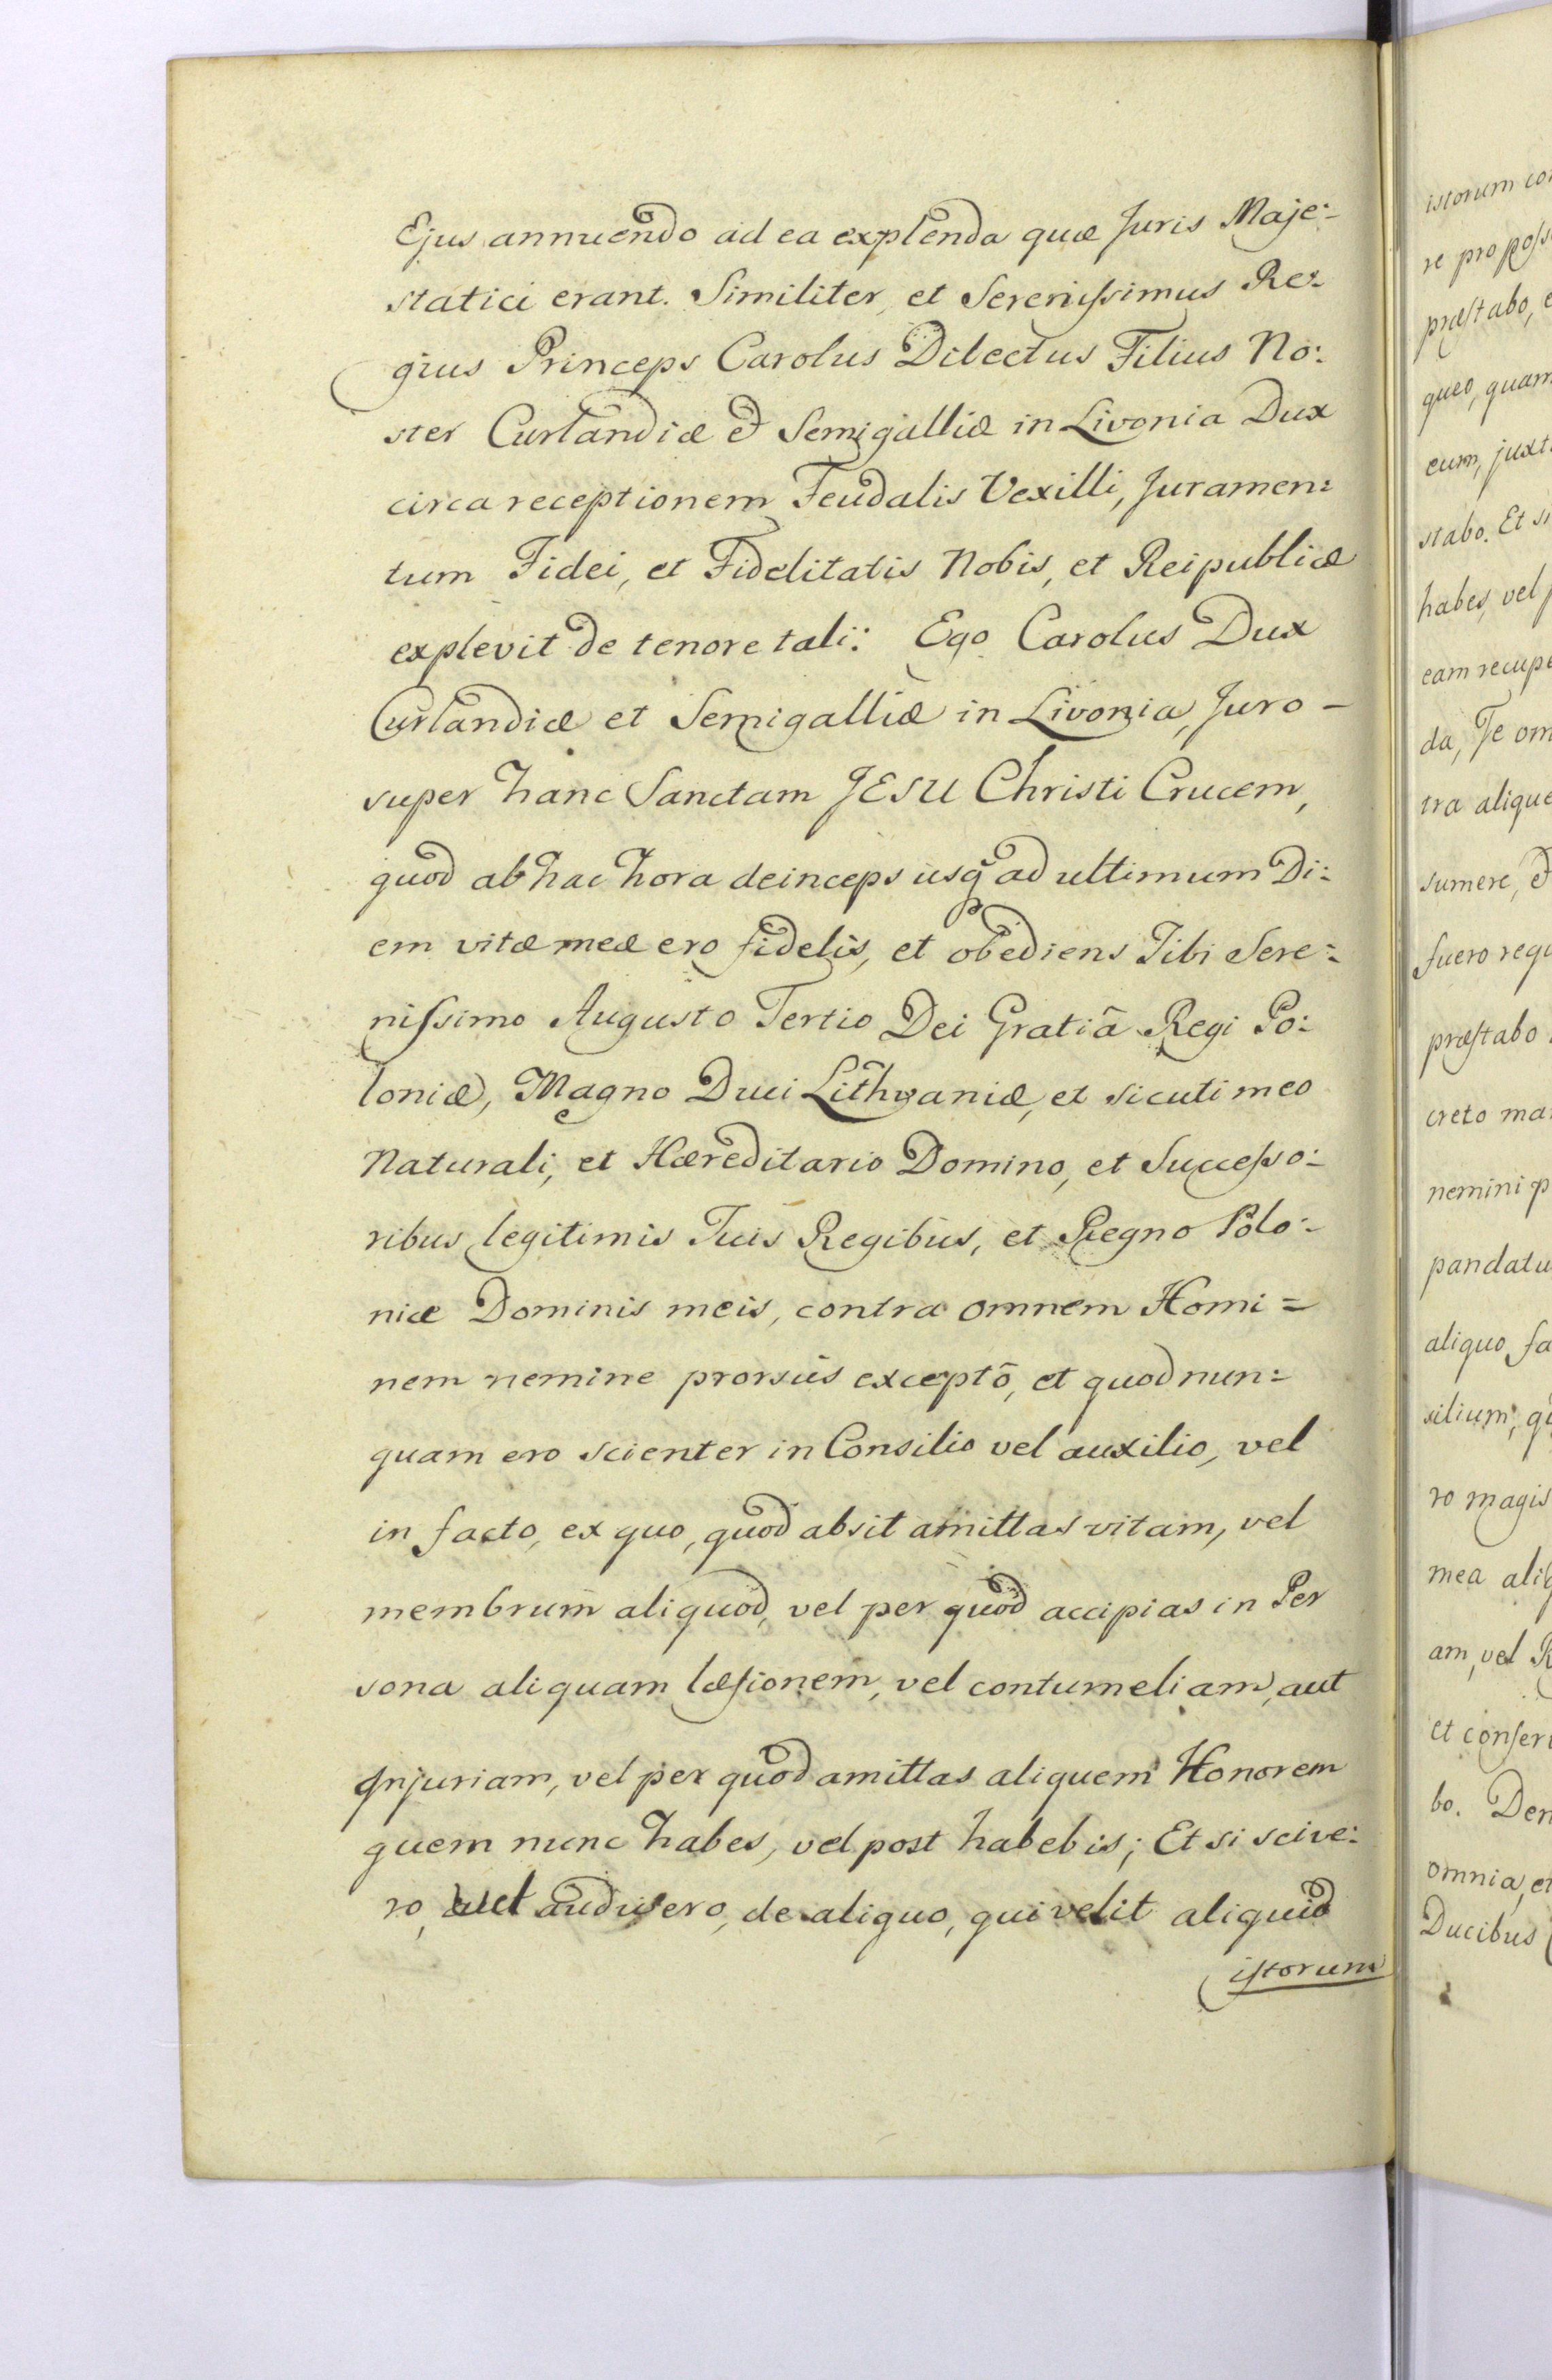 Ejus annuendo ad ea explenda quæ Juris Maje:
statici erant. Similiter, et Serenissimus Re:
gius Princeps Carolus Dilectus Filius No:
ster Curlandiæ & Semigalliæ in Livonia Dux
circa receptionem Feudalis Vexilli, Juramen:
tum Fidei, et Fidelitatis Nobis, et Reipublicæ
explevit de tenore tali: Ego Carolus Dux
Curlandiæ et Semigalliæ in Livonia, Juro -
super hanc Sanctam JESU Christi Crucem,
quod ab hac hora deinceps usq ad ultimum Di:
em vitæ meæ ero fidelis, et obediens Tibi Sere:
nissimo Augusto Tertio Dei Gratiâ Regi Po:
loniæ, Magno Duci Lithvaniæ, et sicuti meo
Naturali, et Hæreditario Domino, et Successo:
ribus legitimis Tuis Regibus, et Regno Polo:
niæ Dominis meis, contra omnem Homi=
nem nemine prorsus exceptô, et quod nun:
quam ero scienter in Consilio vel auxilio, vel
in facto, ex quo, quod absit amittas vitam, vel
membrum aliquod, vel per quod accipias in Per
sona aliquam læsionem, vel contumeliam, aut
Injuriam, vel per quod amittas aliquem Honorem
quem nunc habes, vel post habebis; Et si scive:
ro, aut audivero, de aliquo, qui velit aliquid
istorum
istorum
re pro
præstabo,
queo, quam
eum,
stabo. Et si
habes, vel
eam
da, Te
tra
sumere, &
fuero
præstabo
creto
nemini
aliquo
silium,
ro magis
mea
am, vel
et
bo.
omnia, et
Ducibus